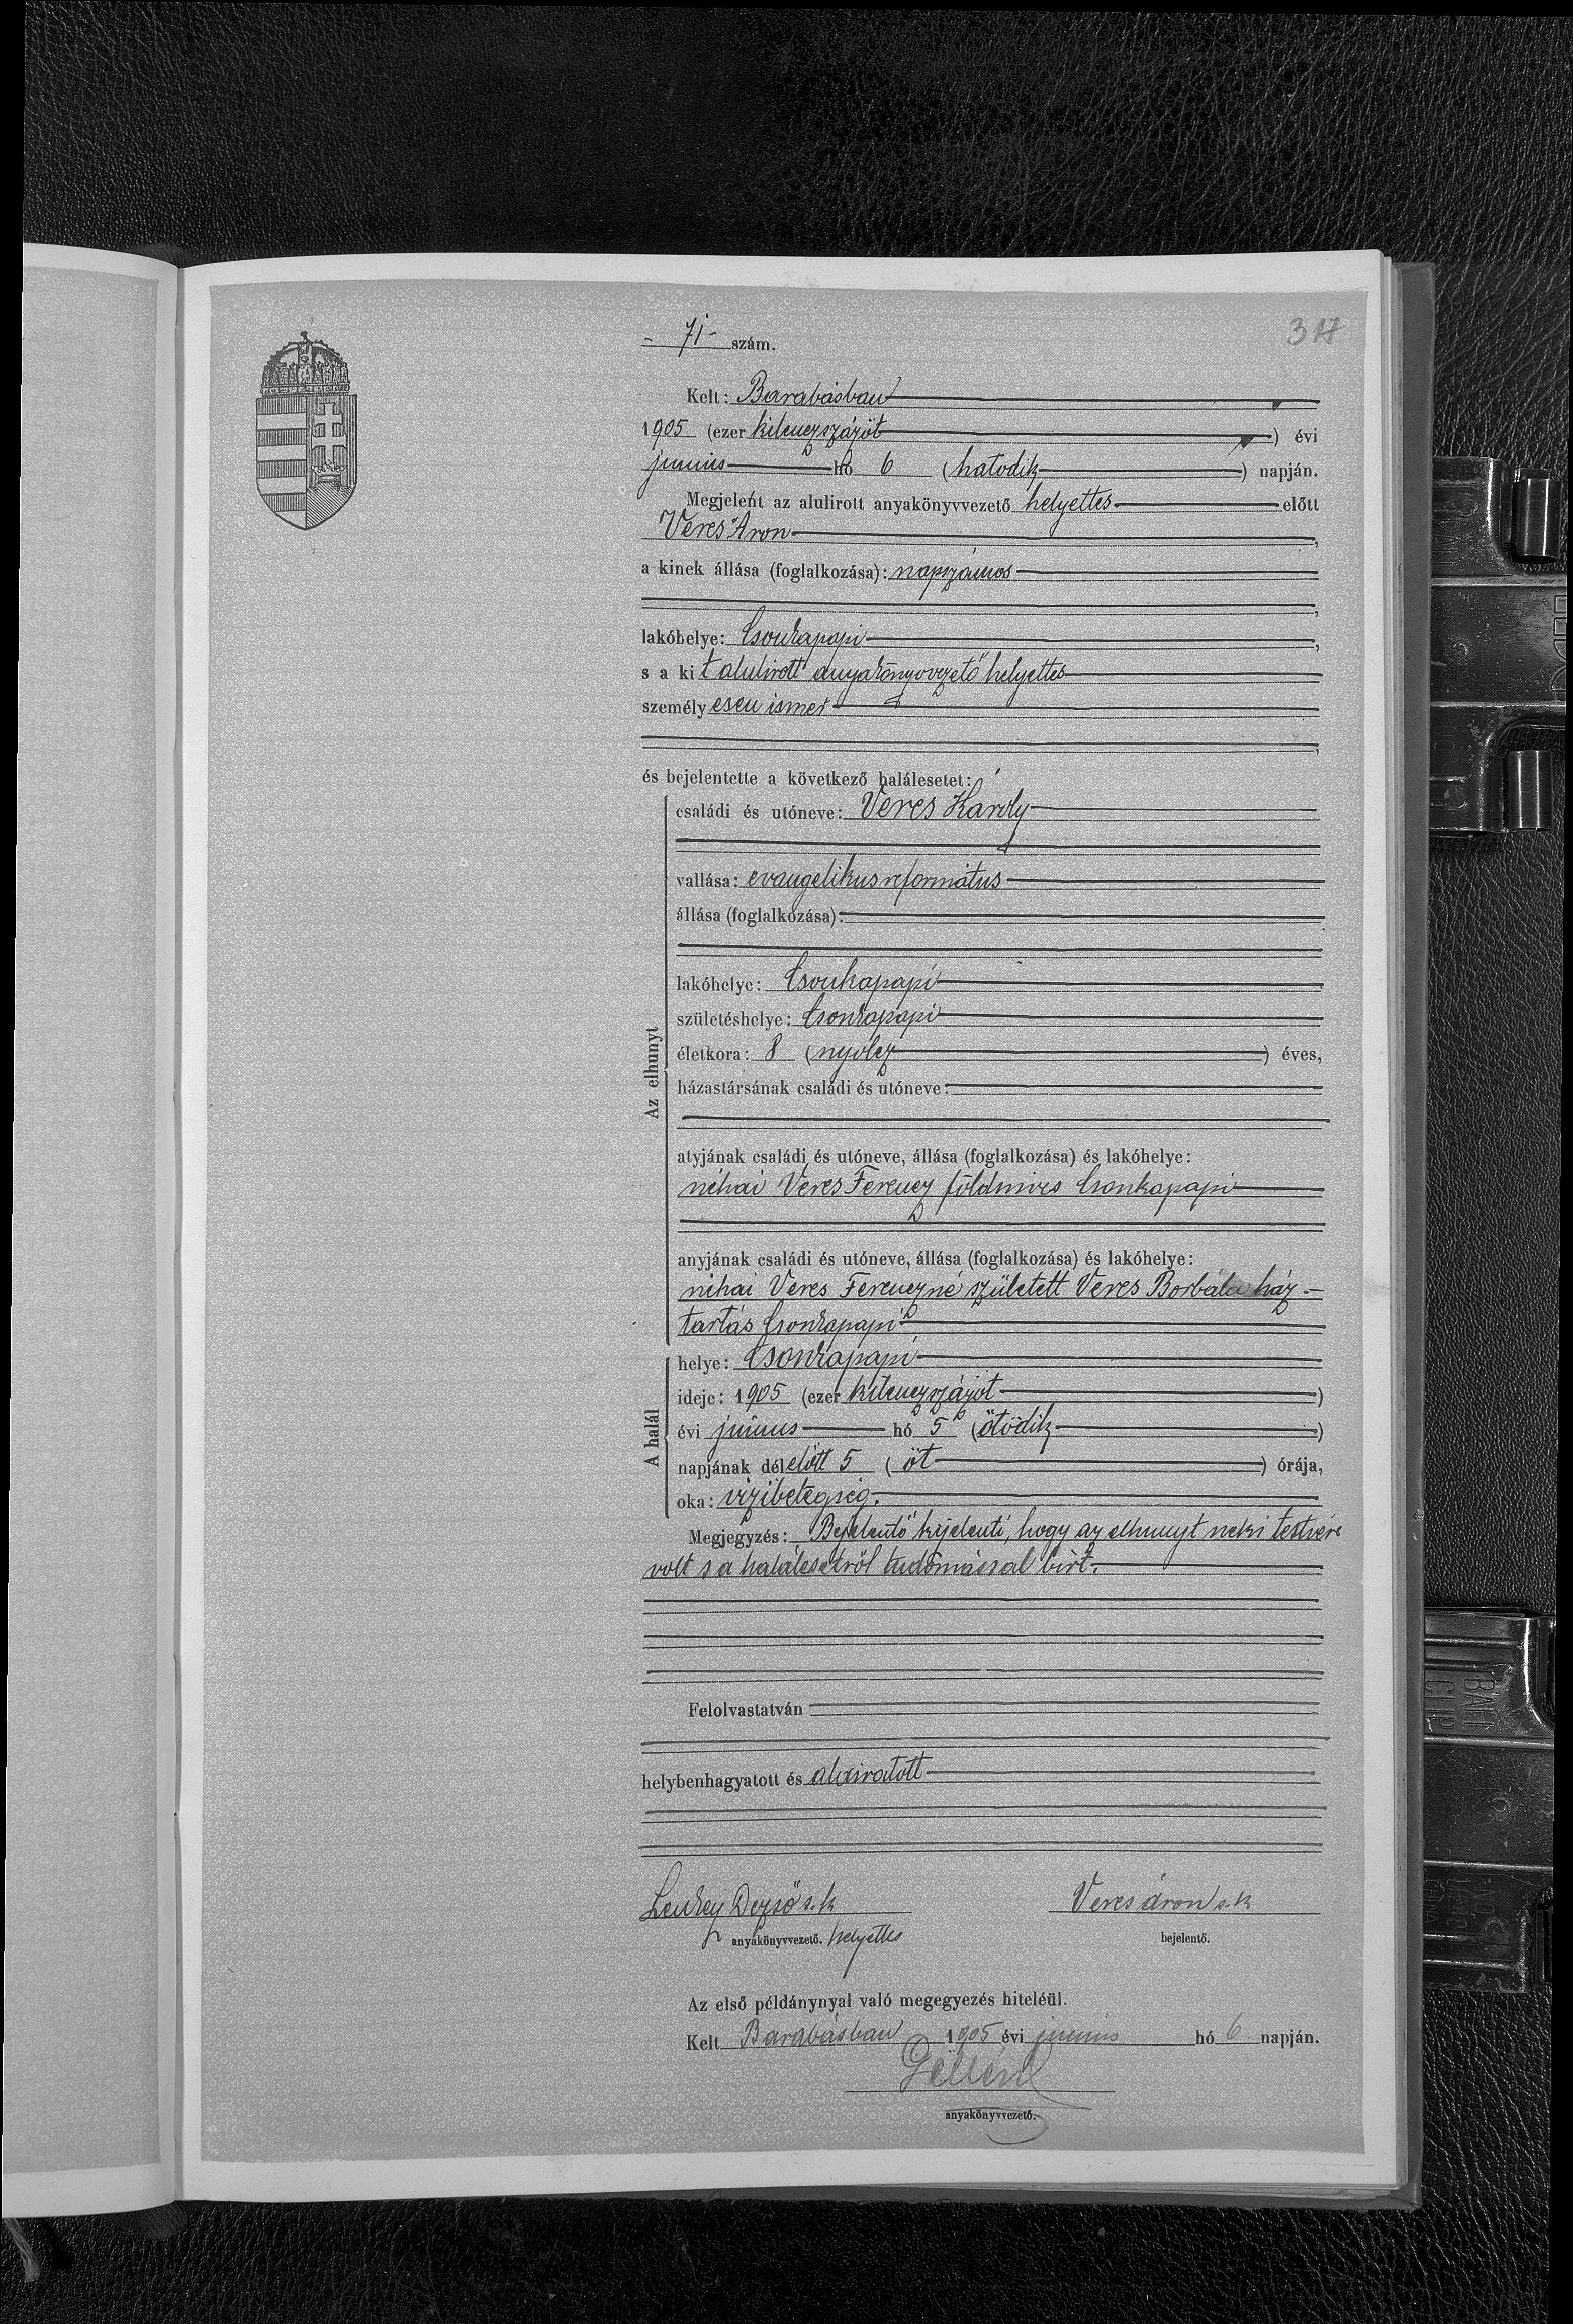 - 71 - szám.
317
Kelt: Barabásban
1905 (ezer kilenczszázöt ) évi
junius hó 6 (hatodik ) napján.
Megjelent az alulirott anyakönyvvezető helyettes előtt
Veres Áron ,
a kinek állása (foglalkozása): napszámos
,
lakóhelye: Csonkapapi ,
s a kit alulirott anyakönyvvezető helyettes
személyesen ismer
,
és bejelentette a következő halálesetet:
Az elhunyt
családi és utóneve: Veres Károly
vallása: evangelikus református
állása (foglalkozása):
lakóhelye: Csonkapapi
születéshelye: Csonkapapi
életkora: 8 (nyolcz ) éves,
házastársának családi és utóneve:
atyjának családi és utóneve, állása (foglalkozása) és lakóhelye:
néhai Veres Ferencz földmives Csonkapapi
anyjának családi és utóneve, állása (foglalkozása) és lakóhelye:
néhai Veres Ferenczné született Veres Borbála ház-
tartás Csonkapapi
A halál
helye: Csonkapapi
ideje: 1905 (ezer kilenczszázöt )
évi junius hó 5 (ötödik )
napjának délelőtt 5 (öt ) órája,
oka: vizibetegség.
Megjegyzés: Bejelentő kijelenti, hogy az elhunyt neki testvére
volt s a halálesetről tudomással birt.
Felolvastatván
helybenhagyatott és aláiratott
Lenkey Dezső s. k. Veres áron s. k.
anyakönyvvezető. helyettes bejelentő.
Az első példánynyal való megegyezés hiteléül.
Kelt Barabásban 1905 évi junius hó 6 napján.
anyakönyvvezető.
BALL
CLIP